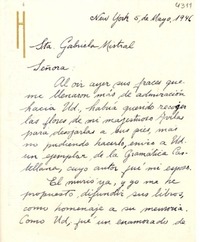 4311
H
New York 5, de Mayo, 1946
Sta. Gabriela Mistral
Señora:
Al oir ayer, sus frases que
me llenaron más de admiración
hacia Ud, habia querido recojer
las flores de mi majestuoso
deshojarlas a sus pies, mas
no pudiendo hacerlo, envio a Ud
un ejemplar de la Gramática Cas-
tellana, cuyo autor fué mi esposo.
El murió ya, y yo me he
propuesto difundir sus libros
como homenaje a su memoria.
Como Ud, fué un enamorado de